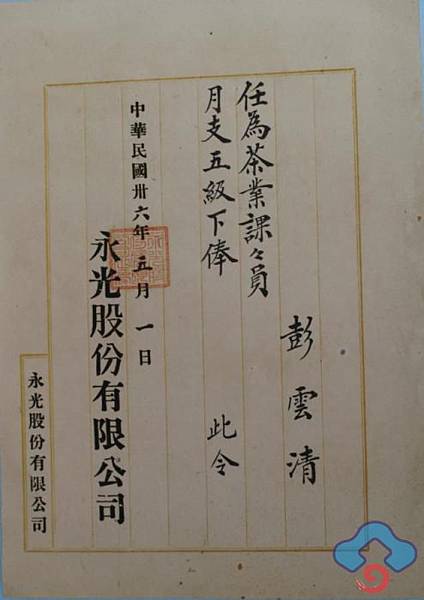 彭雲清
任為茶業課々員
月支五級下俸
此令
中華民國卅六年五月一日
永光股份有限公司
永光股份有限公司